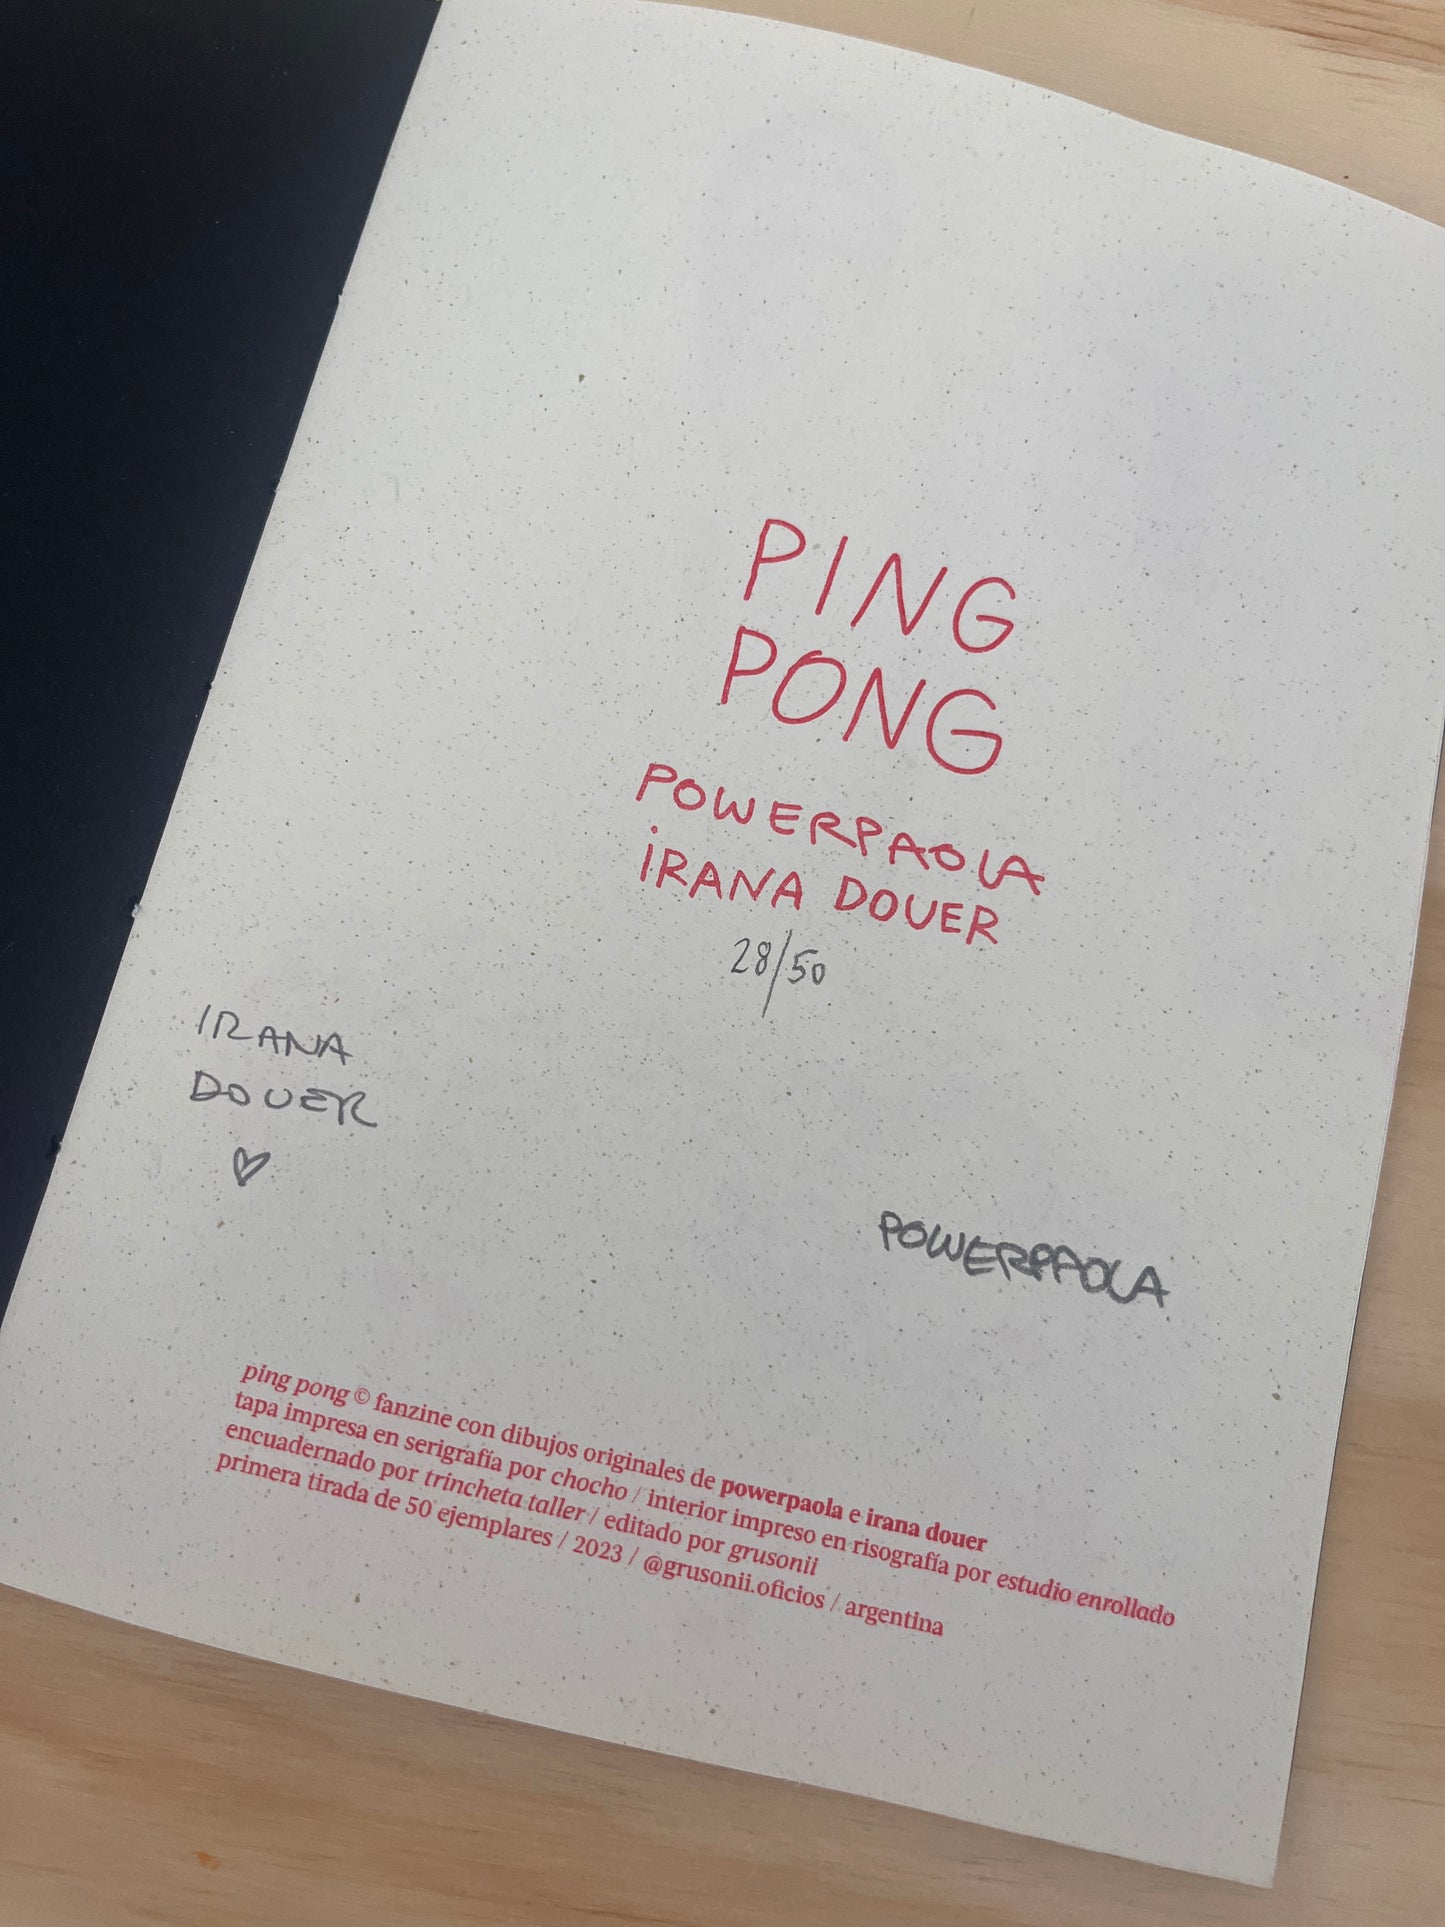 PING
PONG
POWERPAOLA
iRANA DOUER
28/50
IRANA
DOUER
POWERPAOLA
ping pong © fanzine con dibujos originales de powerpaola e irana douer
tapa impresa en serigrafía por chocho / interior impreso en risografía por estudio enrollado
encuadernado por trincheta taller / editado por grusonii
primera tirada de 50 ejemplares / 2023 / @grusonii.oficios / argentina